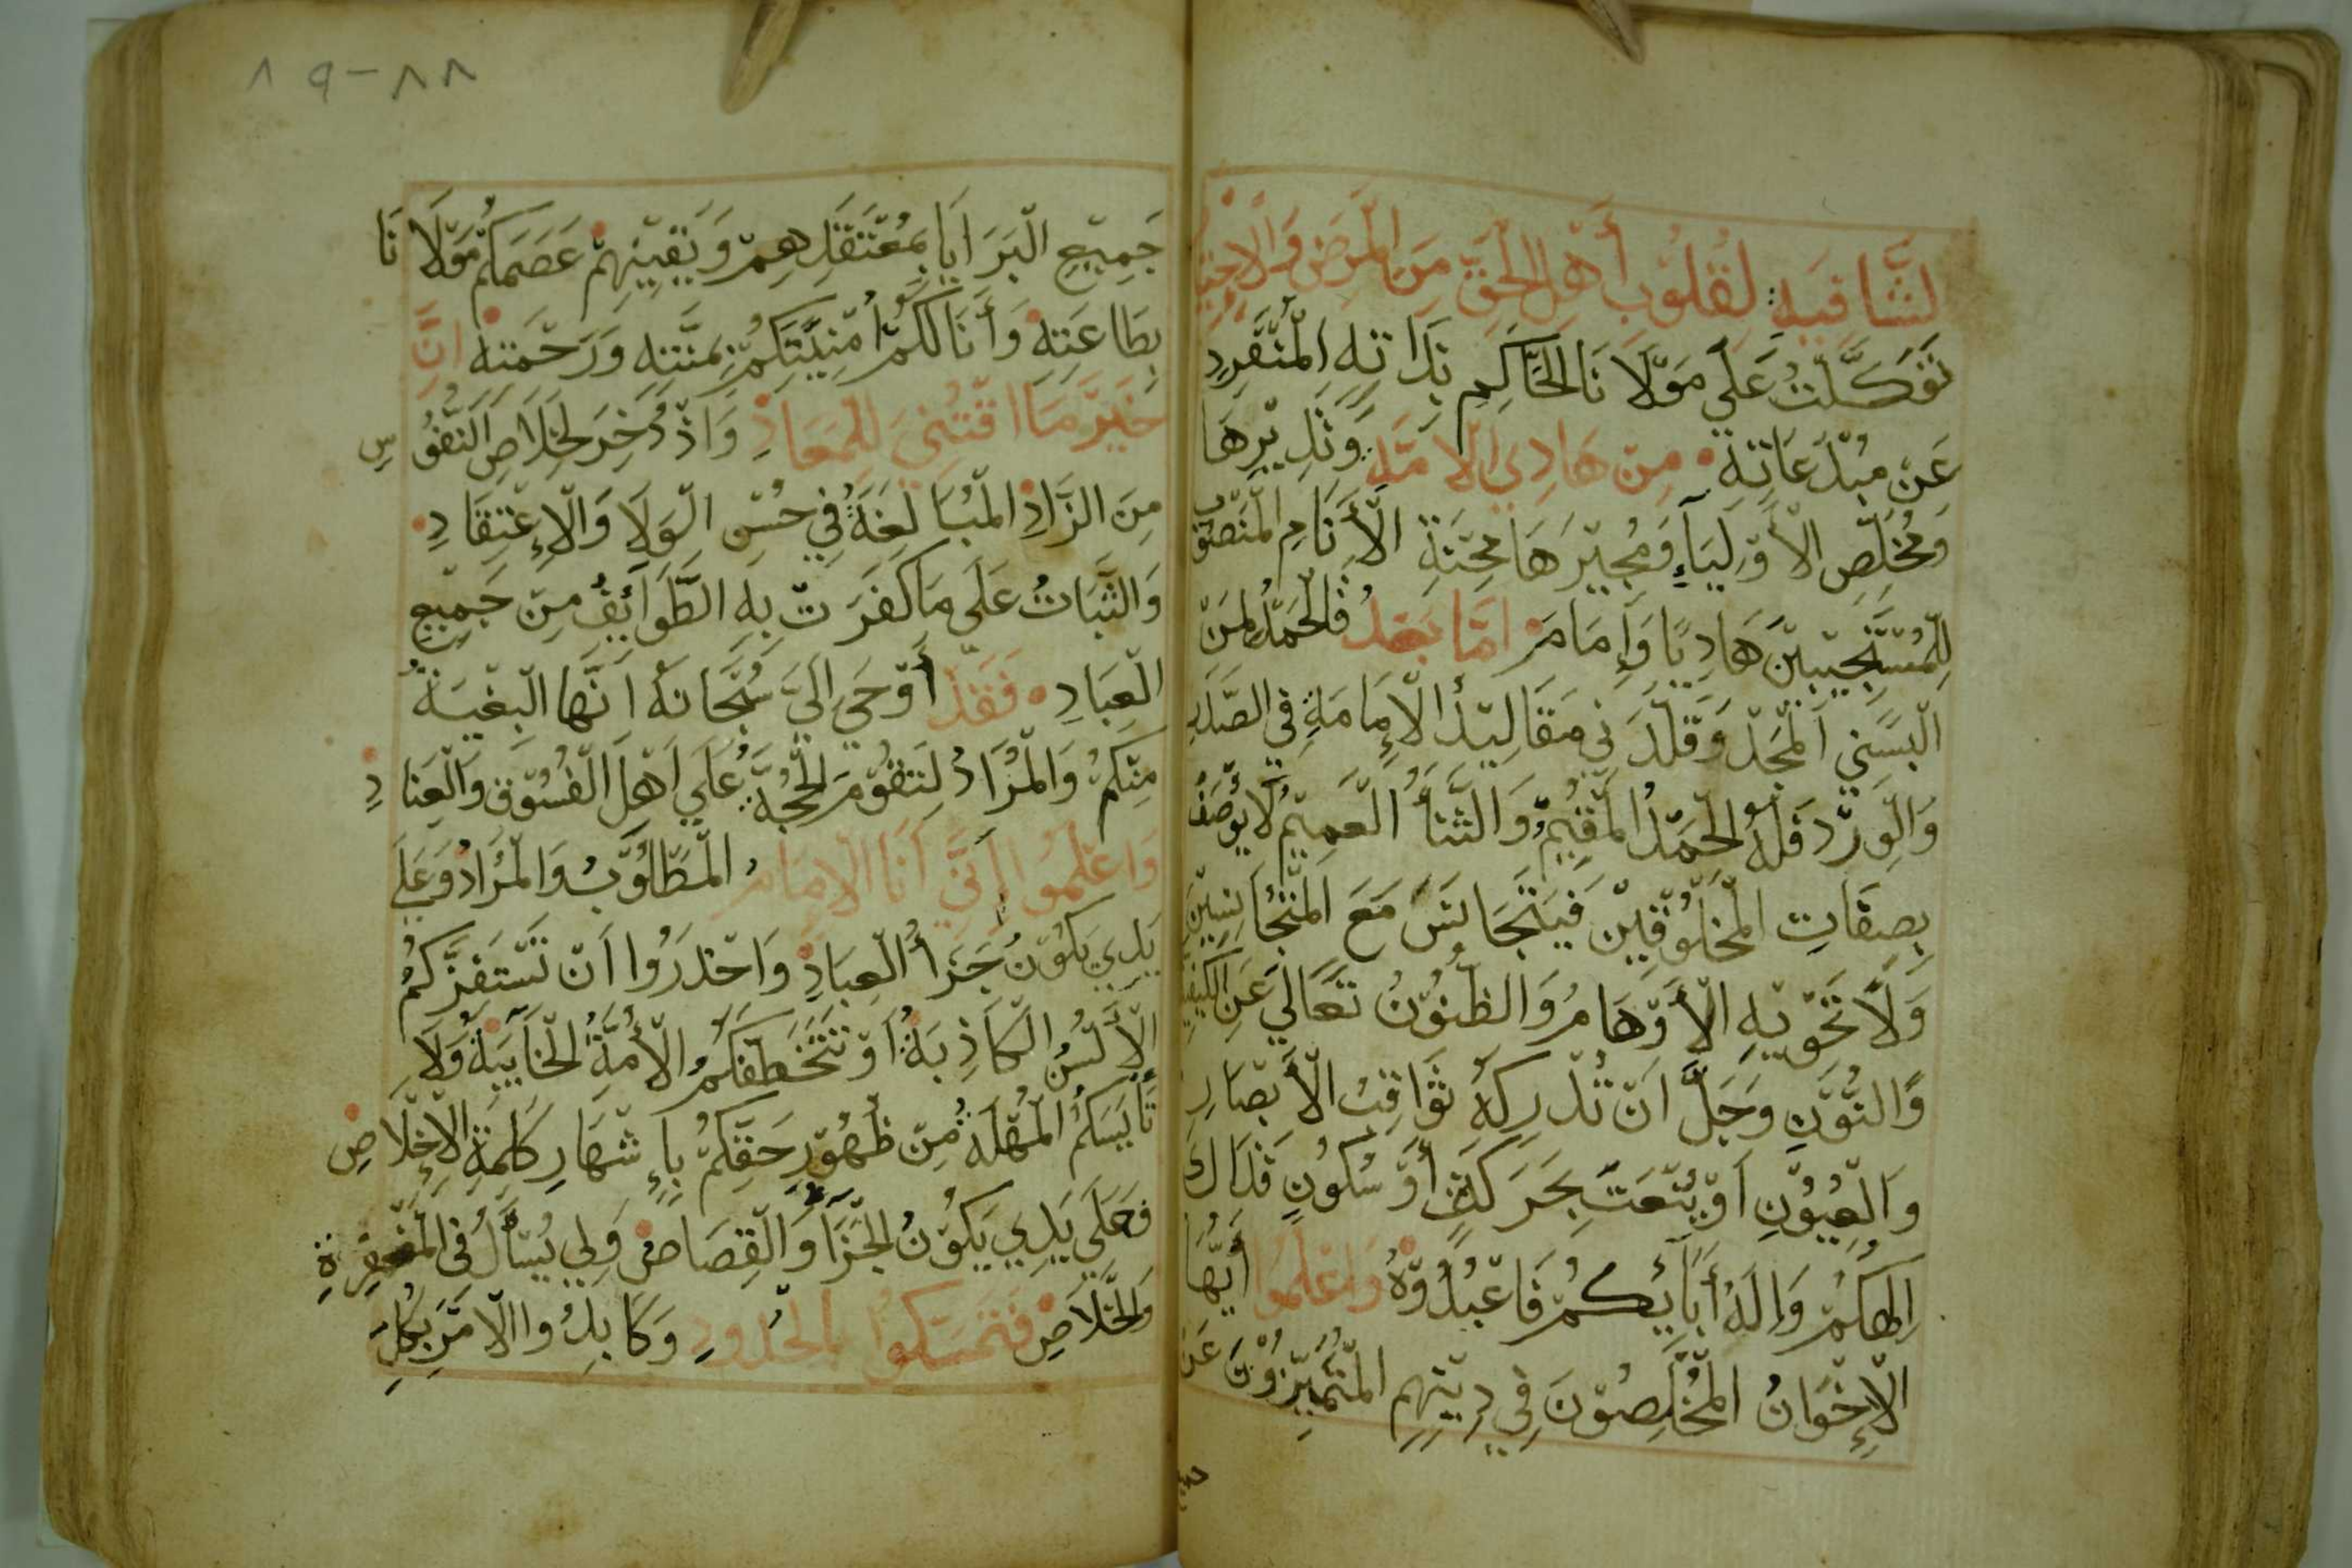 ٨٨-٨٩
لشَّافِيَةِ لِقُلُوبِ أَهْلِ الحَقِّ مِنَ المَرَضِ وَالاِحْتِيَا
تَوَكَّلْتُ عَلَي مَوْلَانَا الحَاكِمِ بِذَاتِهِ المُنْفَرِدِ
عَنْ مُبْدَعَاتِهِ مِنْ هَادِي الأُمَّةِ وَنَذِيرِهَا
وَمُخَلِّصِ الأَوْلِيَاءِ وَمُجِيرِهَا مِحْنَةِ الأَنَامِ المَنْصُوب
لِلْمُسْتَجِيبِينَ هَادِيًا وَإِمَام امَّا بَعْدُ فَالحَمْدُ لِمَنْ
الْبَسَنِي المَجْدَ وَقَلَّدَنِي مَقَالِيدَ الإِمَامَةِ فِي الصَّدَرِ
وَالْوِرْد فَلَهُ الحَمْدُ المُقِيمُ وَالثَّنَأُ العَمِيمُ لَا يُوصَفُ
بِصِفَاتِ المَخْلُوقِينَ فَيَتَجَانَسَ مَعَ المُتَجَانِسِينَ
وَلَا تَحْوِيهِ الأَوْهَامُ وَالظُّنُونُ تَعَالَي عَنِ الكَيْفِيَّةِ
وَالنُّونِ وَجَلَّ انْ تُدْرِكَهُ ثَوَاقِبُ الأَبْصَارِ
وَالْعُيُونِ اَوْ يُنْعَتَ بِحَرَكَةٍ أَوْ سُكُونٍ فَذَاكَ
اِلهكُمْ وَإِلَهُ أَبَأَيِكُمْ فَاعْبُدُوهُ وَاعْلَمُوا أَيُّهَا
الإِخْوَانُ المُخْلِصُونَ فِي دِينِهِم المُتَمَيِّزُوْنَ عَن
جَمِيعِ الْبَرَايَا بِمُعْتَقَدِهِمْ وَيَقِينِهِمْ عَصَمَكُمْ مَوْلَانَا
بِطَاعَتِهِ وَأَنَالَكُمْ أُمْنِيَّتَكُمْ بِمَنَّتِهِ وَرَحْمَتِهِ اِنَّ
خَيْرَ مَا اقْتُنِيَ لِلْمَعَادِ وَادُّخِرَ لِخَلَاصِ النُّفُوسِ
مِنَ الزَّادِ المُبَالَغَةُ فِي حُسْنِ الْوَلَا وَالْإِعْتِقَادِ
وَالثَّبَاتُ عَلَي مَا كَفَرَتْ بِهِ الطَّوَائِفُ مِنْ جَمِيعِ
الْعِبَادِ فَقَدْ أَوْحَي اِلَيَّ سُبْحَانَهُ اَنَّهَا الْبِغْيَةُ
مِنْكُمْ وَالْمُرَادُ لِتَقُوْمَ الْحُجَّةُ عَلَي اَهْلِ الْفُسُوْقِ وَالْعِنَادِ
وَاعْلَمُوا إِنَّنِي اَنَا الْإِمَامُ الْمَطْلُوْبُ وَالْمُرَادُ وَعَلَي
يَدِي يَكُوْنُ جَزَأُ الْعِبَادِ وَاحْذَرُوا اَنْ تَسْتَفِزَّكُمُ
الْأَلْسُنُ الْكَاذِبَةُ اَوْ تَتَخَطَّفَكُمُ الْأُمَّةُ الْخَآيِبَةُ وَلَا
تَأْيِسَكُمُ الْمُهْلَةُ مِنْ ظُهُوْرِ حَقِّكُمْ بِإِشْهَارِ كَلِمَةِ الْإِخْلَاصِ
فَعَلَي يَدِي يَكُوْنُ الْجَزَأُ وَالْقِصَاصُ وَلِي يُسْأَلُ فِي الْمَغْفِرَةِ
وَالْخَلَاصِ فَتَمَسَّكُوا بِالْحُدُودِ وَكَابِدُوا الْامْرَ بِكُلِّ